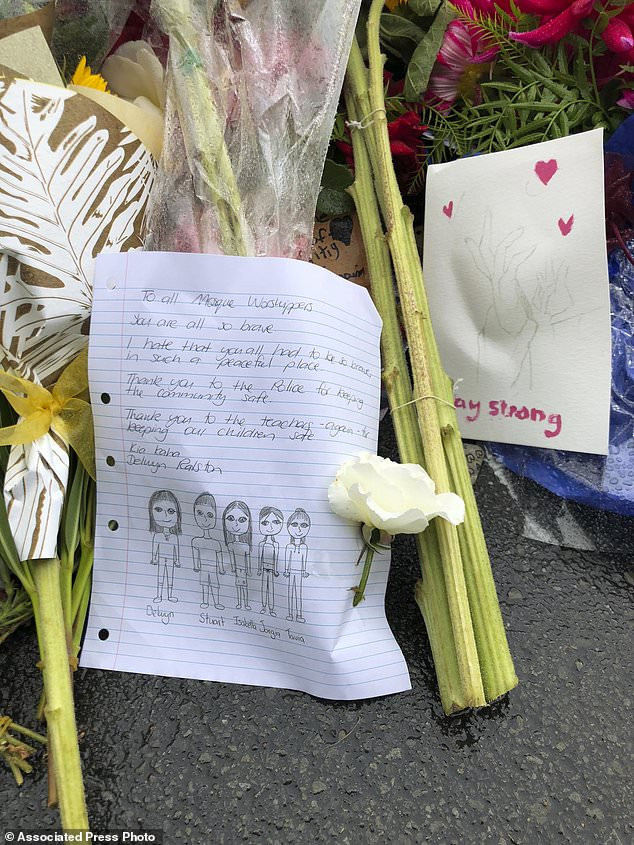 To all Mosque Worshippers
You are all so brave
I hate that you all had to be so brave,
in such a peaceful place.
Thank you to the Police for keeping
the community safe.
Thank you to the teachers -again- for
keeping our children safe
Kia kaha
Delwyn Ralston
Delwyn Stuart Isabella Jorgia
ay strong
© Associated Press Photo